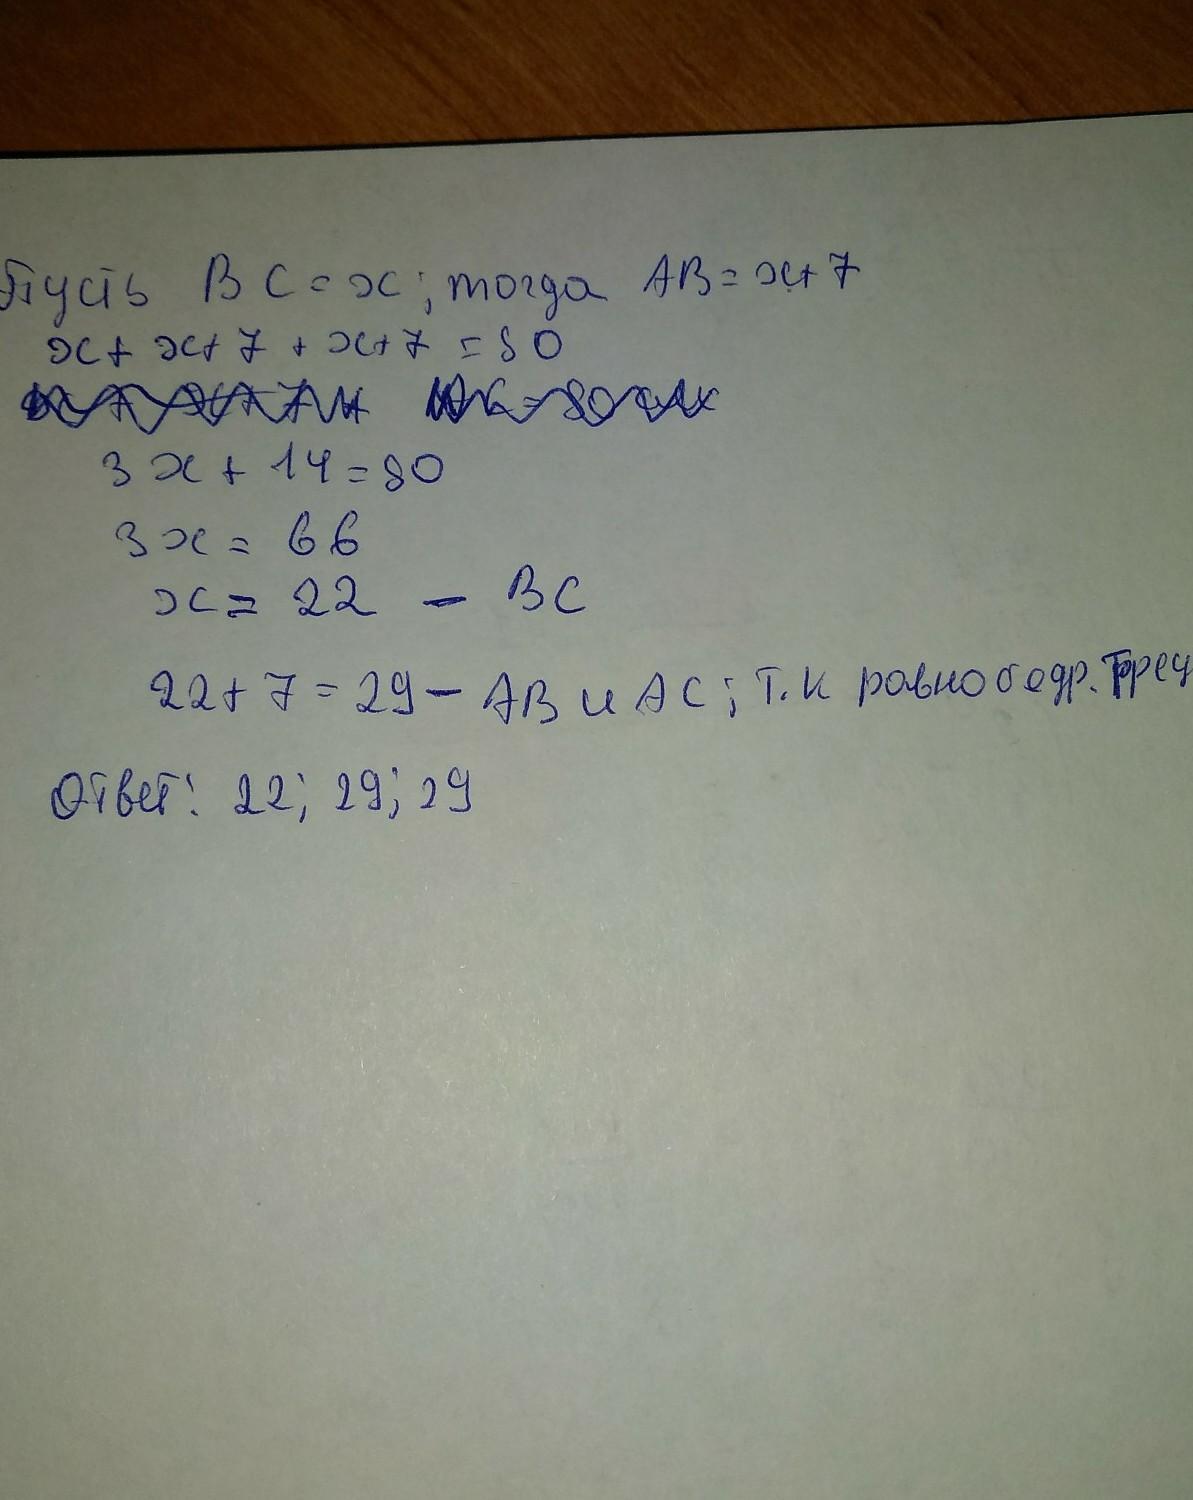 Пусть BC = x; тогда AB = x+7
x + x+7 + x+7 = 80
3x + 14 = 80
3x = 66
x = 22 - BC
22+7 = 29 - AB и AC; т.к равнобедр. треу
Ответ: 22; 29; 29